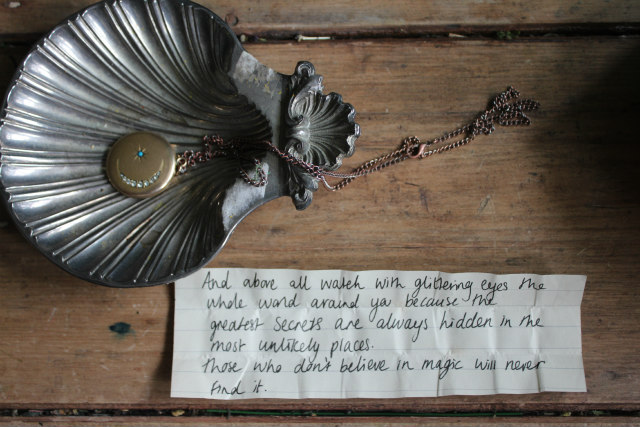 And above all watch with glittering eyes the
whole world around you because the
greatest secrets are always hidden in the
most unlikely places.
Those who don't believe in magic will never
find it.